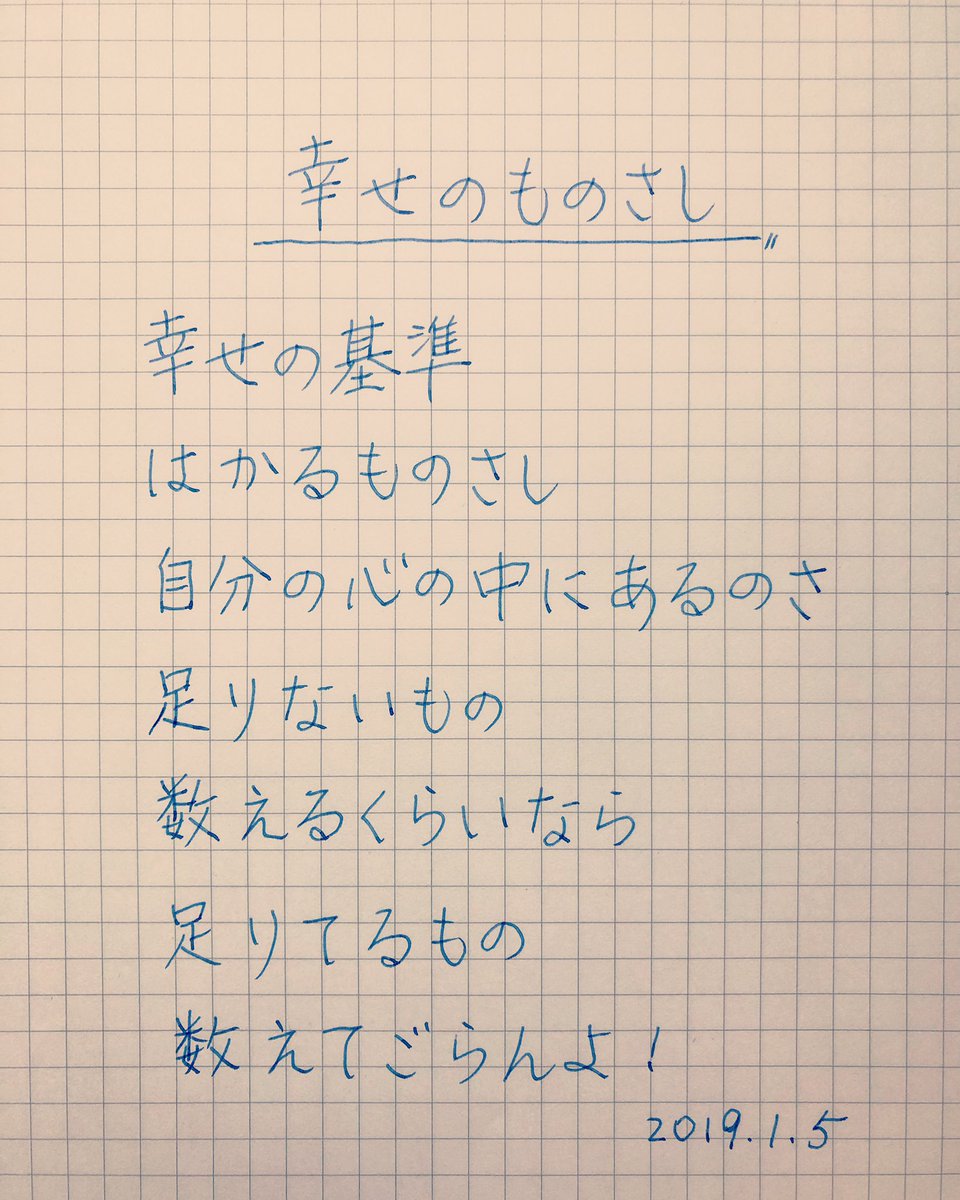 幸せのものさし
幸せの基準
はかるものさし
自分の心の中にあるのさ
足りないもの
数えるくらいなら
足りてるもの
数えてごらんよ!
2019.1.5